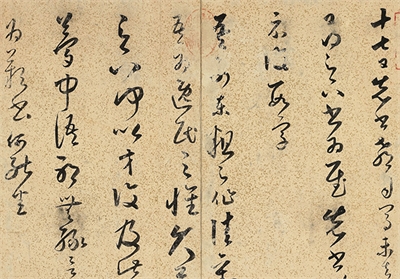 十七日先書郗司馬未去
得足下書為慰先書
示復數字
吾前東粗足作佳觀
吾為逸民之懷久矣
足下何以方復及此
夢中語耶無緣言
為歎書何能悉